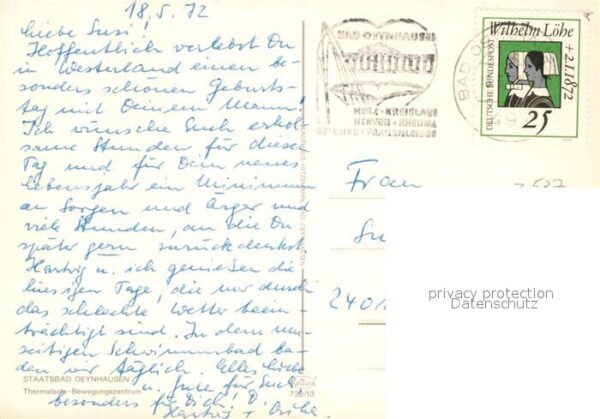 18.5.72
Liebe Susi!
Hoffentlich verlebst Du
in Westerland einen be-
sonders schönen Geburts-
tag mit Deinem Mann!
Ich wünsche Euch erhol-
same Stunden für diesen
Tag und für Dein neues
Lebensjahr ein Minimum
an Sorgen und Ärger und
viele Stunden, an die Du
später gern zurückdenkst.
Hartwig u. ich genießen die
hiesigen Tage, die nur durch
das schlechte Wetter beein-
trächtigt sind. In dem
seitigen Schwimmbad ba-
den wir täglich. Alles Liebe
u. Gute für Euch,
besonders für Dich!
Hartwig +
STAATSBAD OEYNHAUSEN
Thermalsole-Bewegungszentrum
722/13
BAD OEYNHAUSEN
HERZ - KREISLAUF
NERVEN - RHEUMA
GELENKE - FRAUENLEIDEN
BAD OE
Wilhelm Löhe
+ 2.1.1872
DEUTSCHE BUNDESPOST
25
1972
Frau
Su
2401
privacy protection
Datenschutz